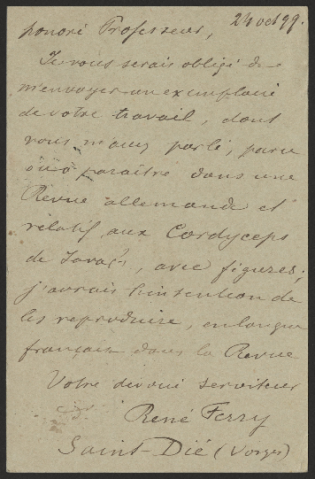 24 oct 99.
honoré Professeur,
Je vous serais obligé de
m'envoyer un exemplaire
de votre travail, dont
vous m'avez parlé, paru
ou à paraître dans une
Revue allemande et
relatif aux Cordyceps
de Java, avec figures;
j'aurais l'intention de
les reproduire, en langue
française dans la Revue.
Votre dévoué serviteur
René Ferry
Saint-Dié (Vosges)